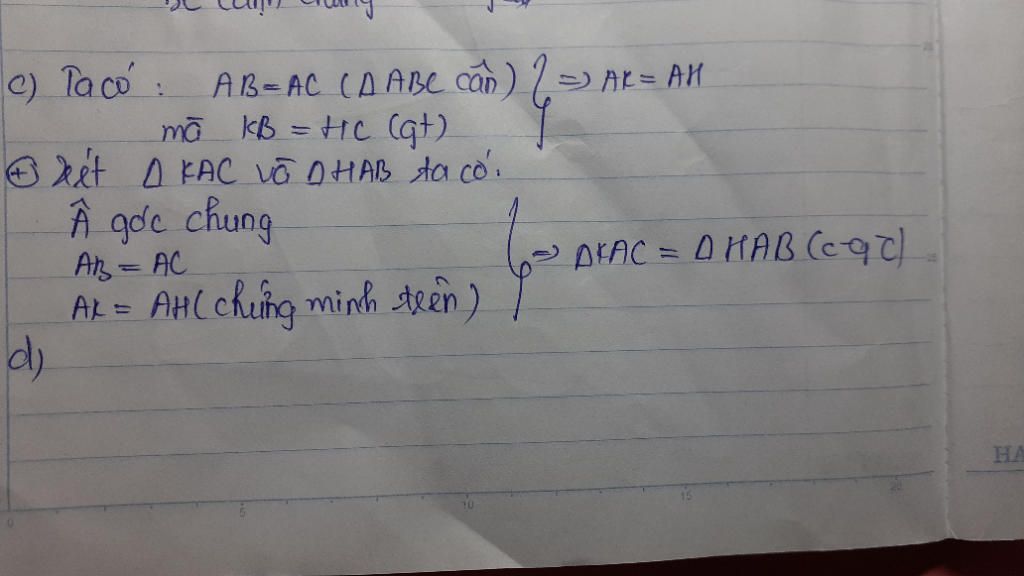 BC (cạnh chung
c) Ta có : AB = AC (Δ ABC cân) } => AK = AH
mà KB = HC (gt)
+ Xét Δ KAC và Δ HAB ta có.
Â góc chung
AB = AC } => ΔKAC = ΔHAB (c-g-c)
AK = AH (chứng minh trên)
d)
HA
0 5 10 15 20